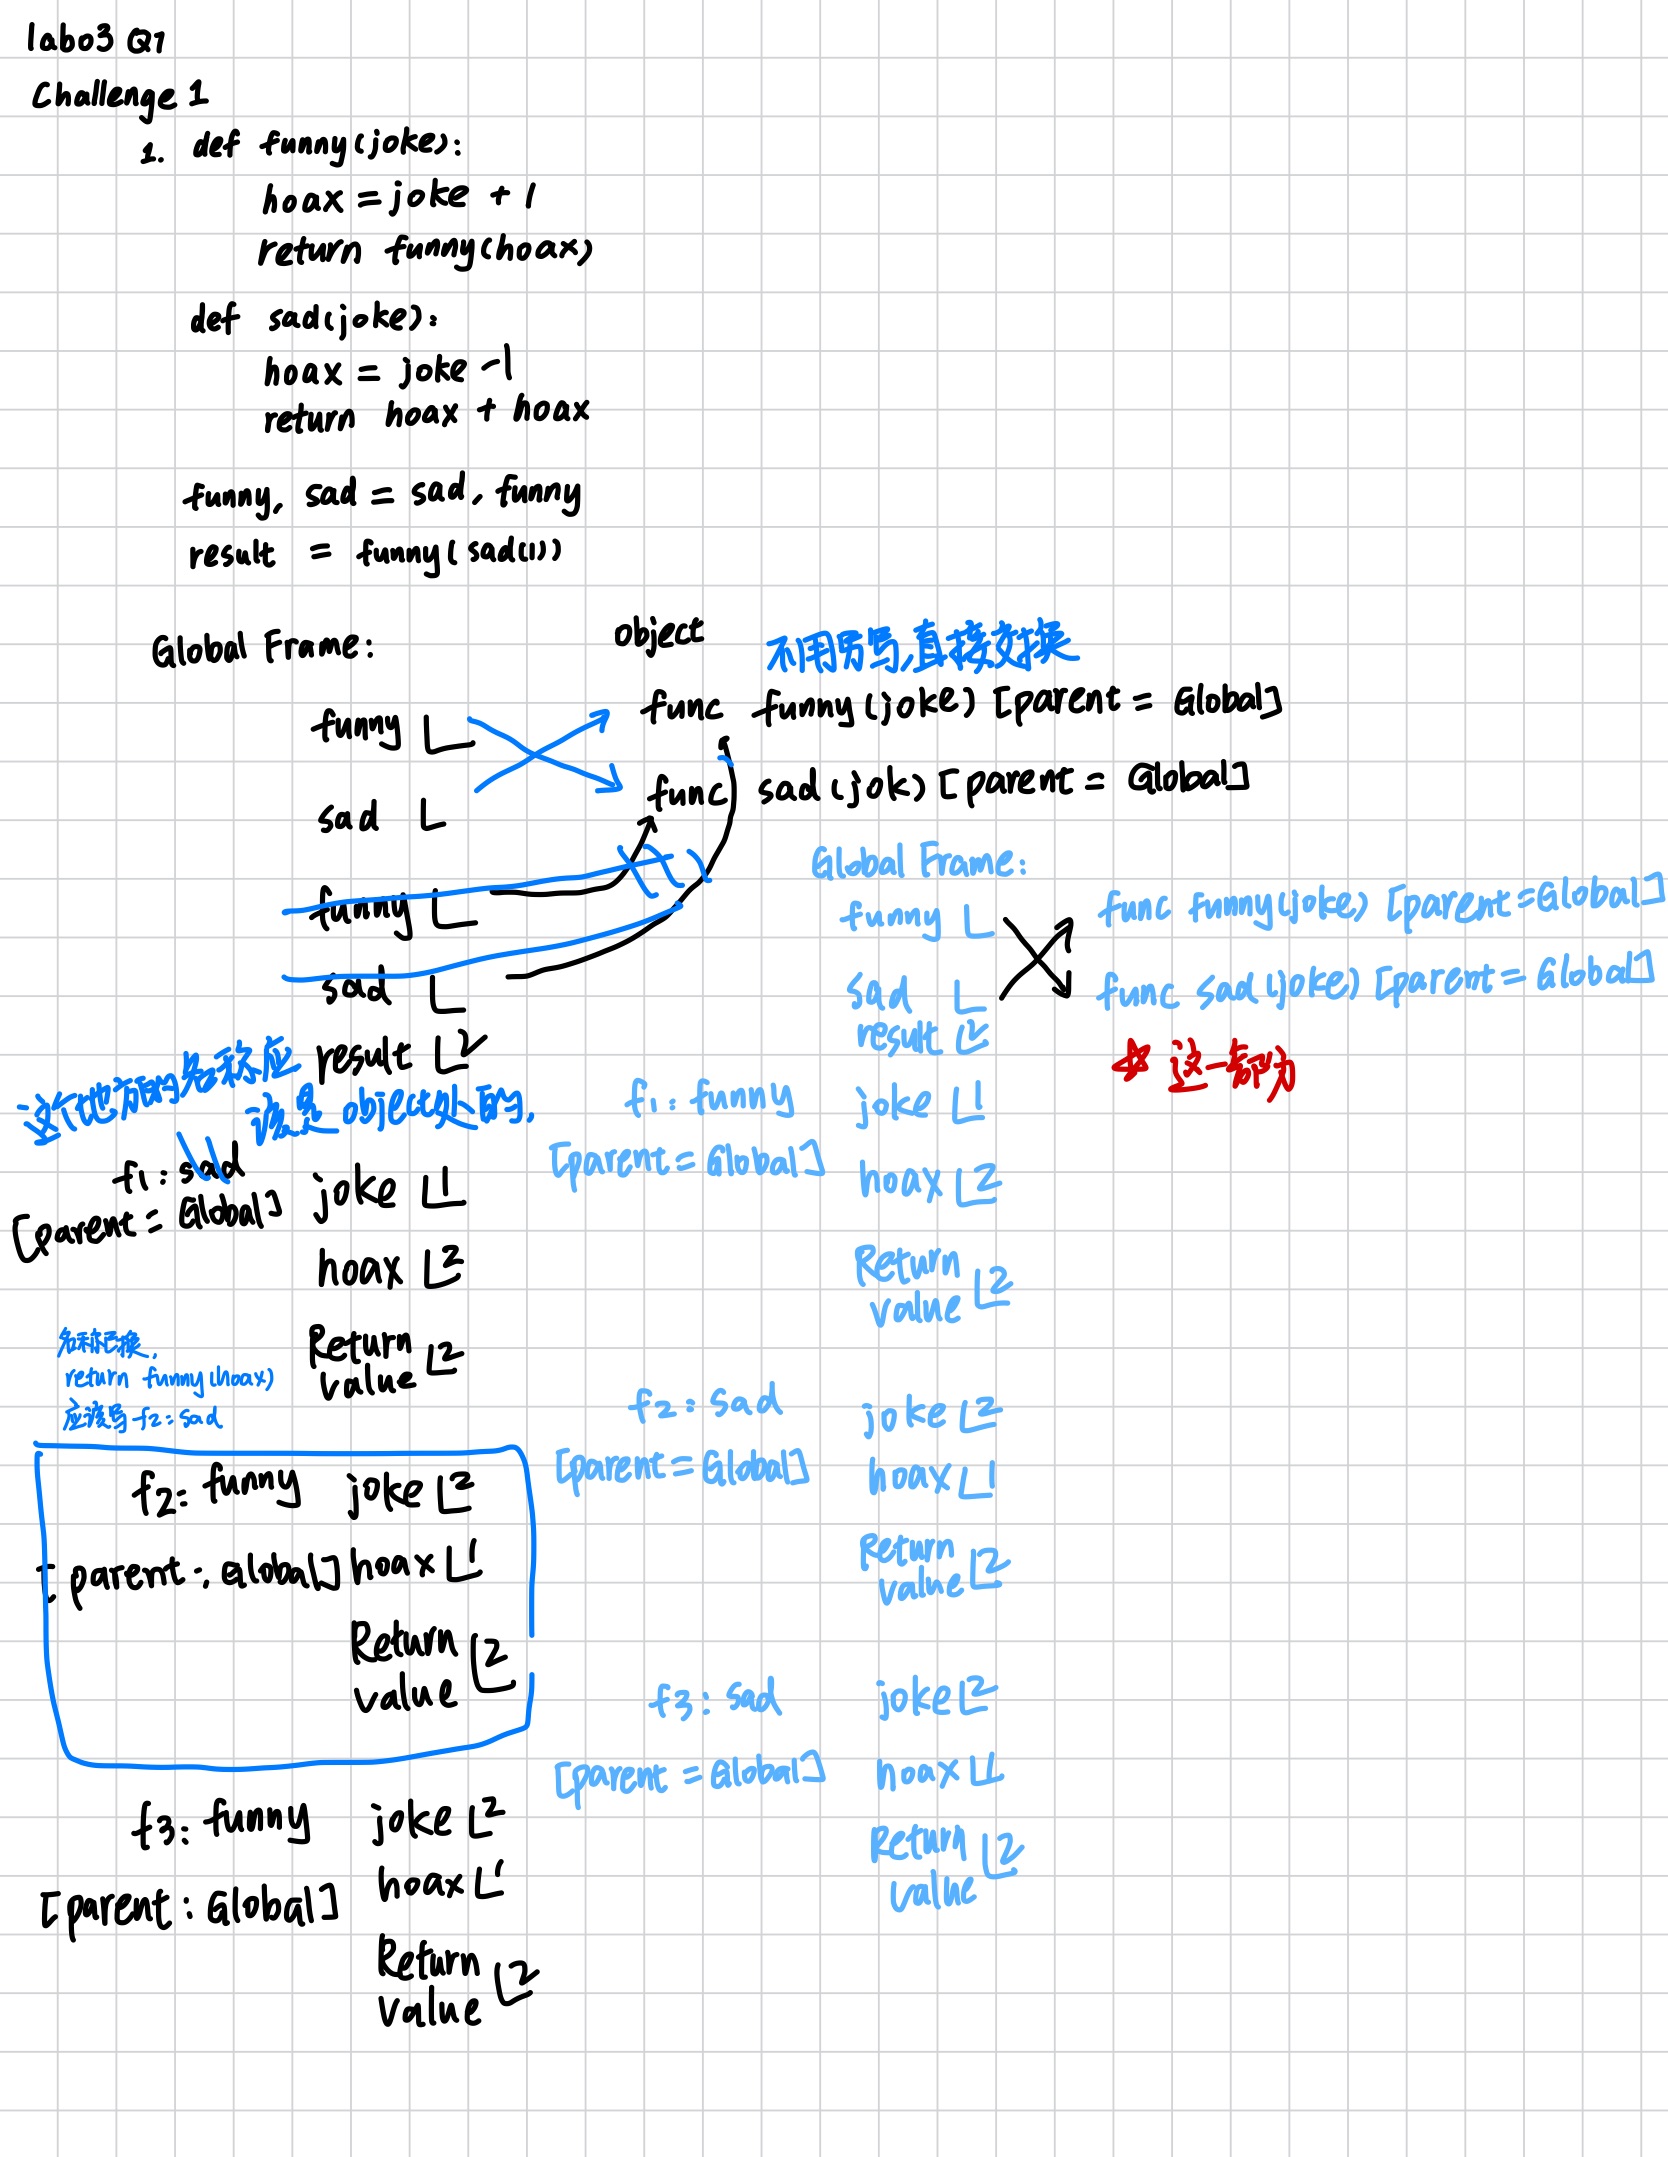 lab03 Q1
Challenge 1
1. def funny(joke):
hoax = joke + 1
return funny(hoax)
def sad(joke):
hoax = joke - 1
return hoax + hoax
funny, sad = sad, funny
result = funny(sad(1))
Global Frame:
object
不用另写,直接交换
funny
func funny(joke) [parent = Global]
sad
func sad(jok) [parent = Global]
funny
sad
result 2
这个地方的名称应
该是 object处的.
f1: sad
[parent = Global]
joke 1
hoax 2
Return value 2
名称已换,
return funny(hoax)
应该写 f2: sad
f2: funny joke 2
[parent: Global] hoax 1
Return value 2
f3: funny joke 2
[parent: Global] hoax 1
Return value 2
Global Frame:
funny
func funny(joke) [parent = Global]
sad
func sad(joke) [parent = Global]
result 2
☆ 这一部分
f1: funny joke 1
[parent = Global] hoax 2
Return value 2
f2: sad joke 2
[parent = Global] hoax 1
Return value 2
f3: sad joke 2
[parent = Global] hoax 1
Return value 2